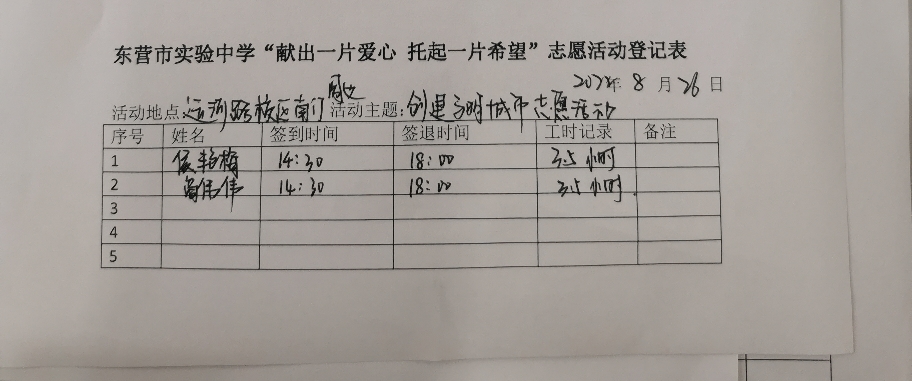 东营市实验中学“献出一片爱心 托起一片希望”志愿活动登记表
2024年 8 月 26 日
活动地点:运河路校区南门周边 活动主题:创建文明城市志愿活动
序号 姓名 签到时间 签退时间 工时记录 备注
1 侯艳梅 14:30 18:00 3.5小时
2 伟伟 14:30 18:00 3.5小时
3
4
5